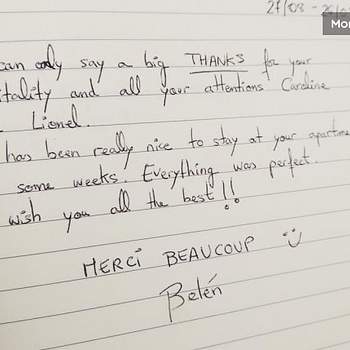 27/03 -
Mo
can only say a big THANKS for your
itality and all your attentions Caroline
Lionel.
has been really nice to stay at your apartme
some weeks. Everything was perfect.
wish you all the best!!
MERCI BEAUCOUP :)
Belén